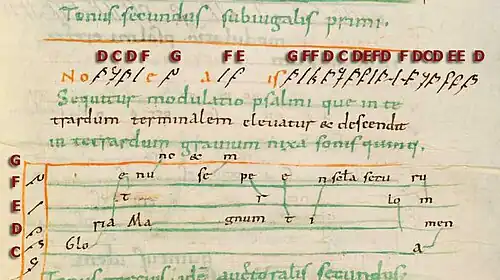 Tonus secundus subiugalis primi.
D C D F G F E G FF D C DEFD F DCD EE D
No e a is
Sequitur modulatio psalmi que in te
trardum terminalem elevatur & descendit
in tetrardum gravium nixa sonis quinq.
G ne & m
F e nu se pe e n sela secu ru
t r
E lo m
D ria Ma gnum t i men
C Glo a
Tonus secundus